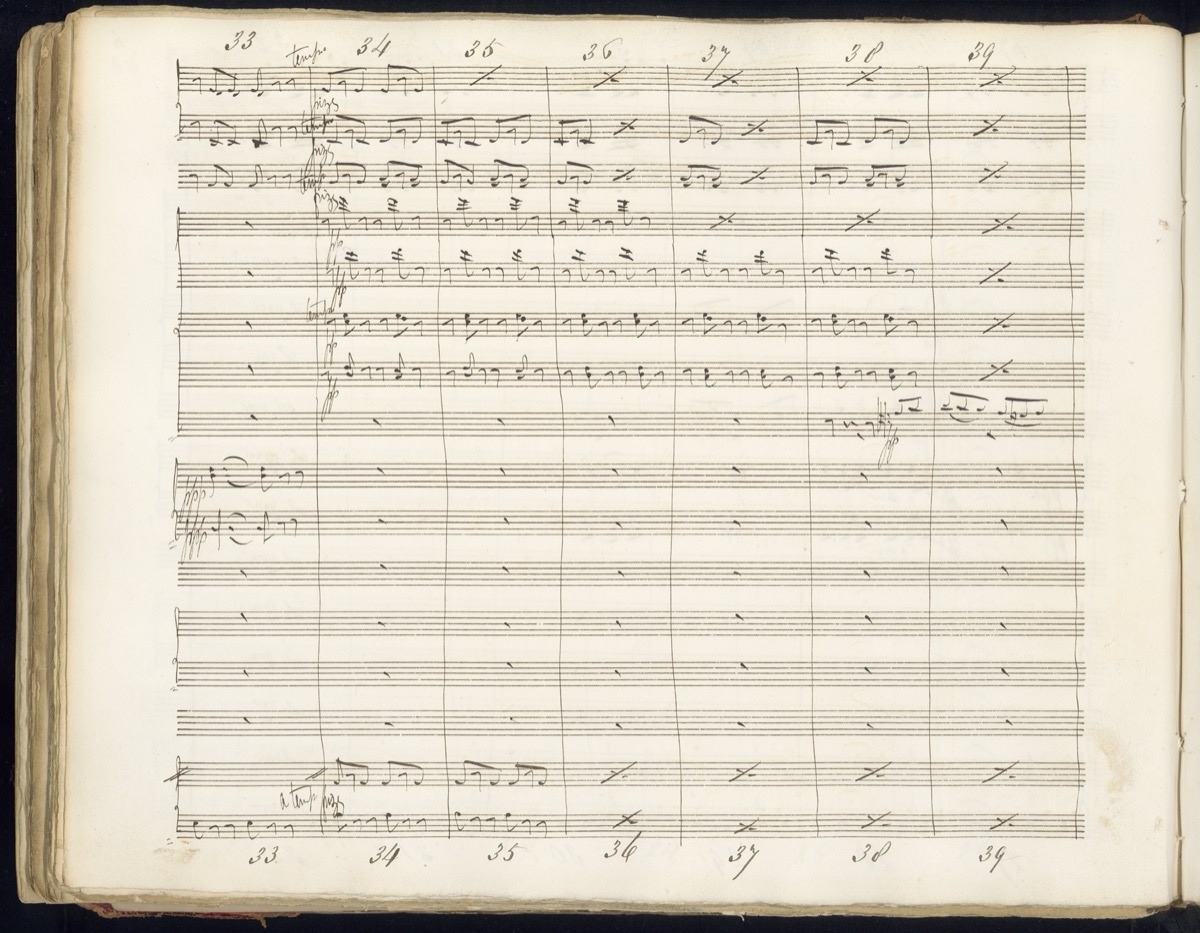 33 tempo 34 35 36 37 38 39
pizz
tempo
pizz
pizz
pp
pp
tempo
pp
pp
pp
ppp
ppp
a temp pizz
33 34 35 36 37 38 39